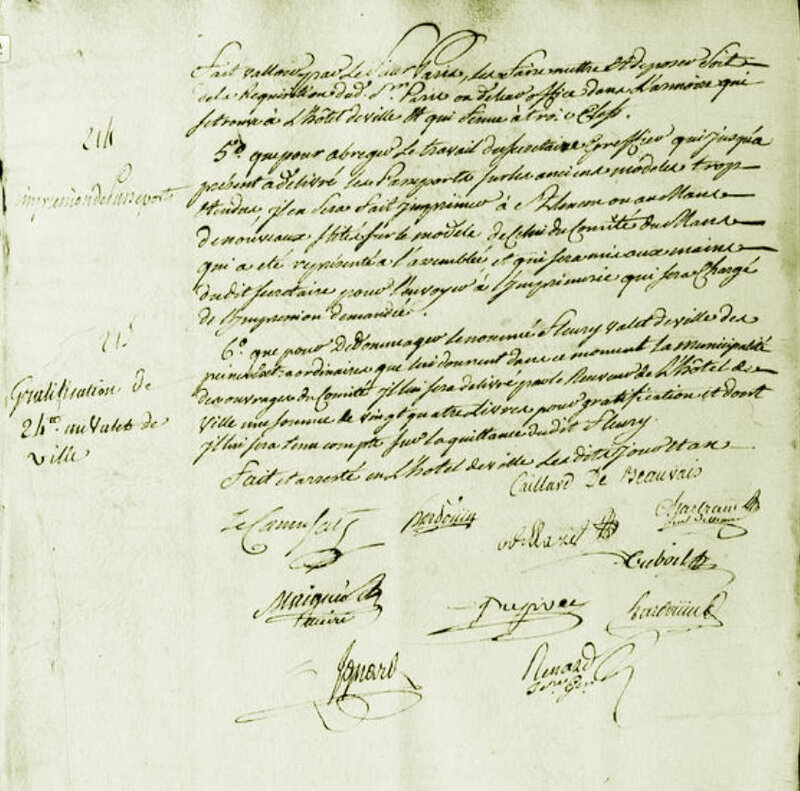 fait valloir par le Sieur Paris, les faire mettre et deposer soit
de la Requisition dud. Sr. Paris ou de leur office dans l'armoire qui
se trouve à l'hôtel de ville et qui ferme à trois clefs.
214
impression de Passeports
5°. que pour abreger le travail du secretaire Greffier qui jusqu'a
présent a delivré les Passeports sur les anciens modeles trop
etendus, il en sera fait imprimer à Alencon ou au Mans
de nouveaux sur le modele de celui du Comité du Mans
qui a été représenté a l'assemblée et qui sera mis aux mains
dudit secretaire pour l'envoyer à l'Imprimerie qui sera Chargé
de l'Impression demandée.
215
Gratification de
24 au Valet de
Ville
6°. que pour Dedommager le nommé Fleury valet de ville des
peines extraordinaires que lui donnent dans ce moment la municipalité
des ouvrages du Comité, il lui sera delivré par le Receveur de l'hôtel de
ville une somme de vingt quatre Livres pour gratification et dont
il lui sera tenu compte sur la quittance dudit Fleury.
Fait et arresté en l'hotel de ville les dits jour et an
Caillard De Beauvais
Le Camusat
hardouin
Villaziel
Chartrain
Dubois
Maigné
maire
Hardouin
Ignard
Renard